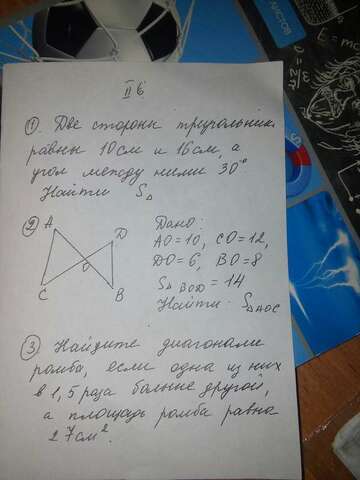 II б
① Две стороны треугольника
равны 10 см и 16 см, а
угол между ними 30°
Найти S△
② Дано:
A
D
AO=10, CO=12,
DO=6, BO=8
O
S△ BOD = 14
C
B
Найти: S△AOC
③ Найдите диагонали
ромба, если одна из них
в 1,5 раза больше другой,
а площадь ромба равна
27 см².